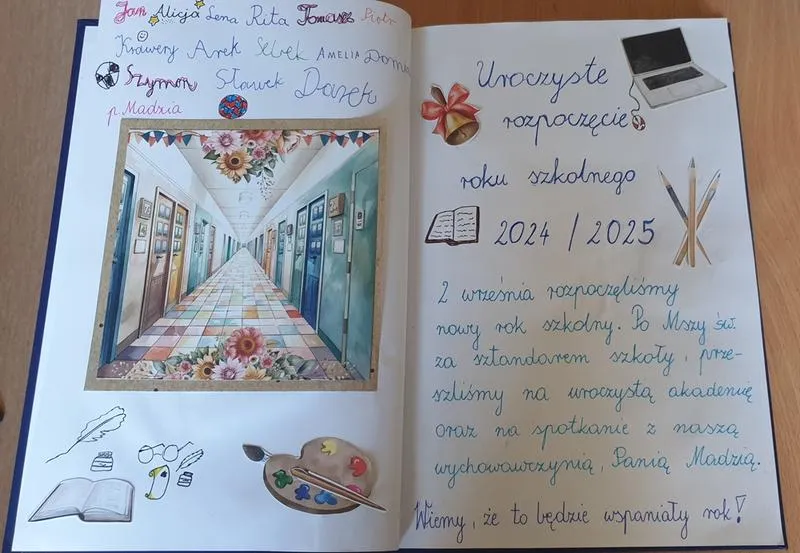 Jan Alicja Lena Rita Tomasz Piotr
Ksawery Arek Sebek AMELIA
Szymon Sławek Darek
p. Madzia
Uroczyste
rozpoczęcie
roku szkolnego
2024 / 2025
2 września rozpoczęliśmy
nowy rok szkolny. Po Mszy św.
za sztandarem szkoły, prze-
szliśmy na uroczystą akademię
oraz na spotkanie z naszą
wychowawczynią, Panią Madzią.
Wiemy, że to będzie wspaniały rok!